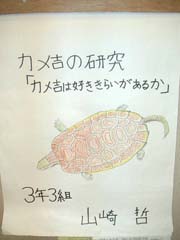 カメ吉の研究
「カメ吉は好ききらいがあるか」
3年3組
山崎 哲